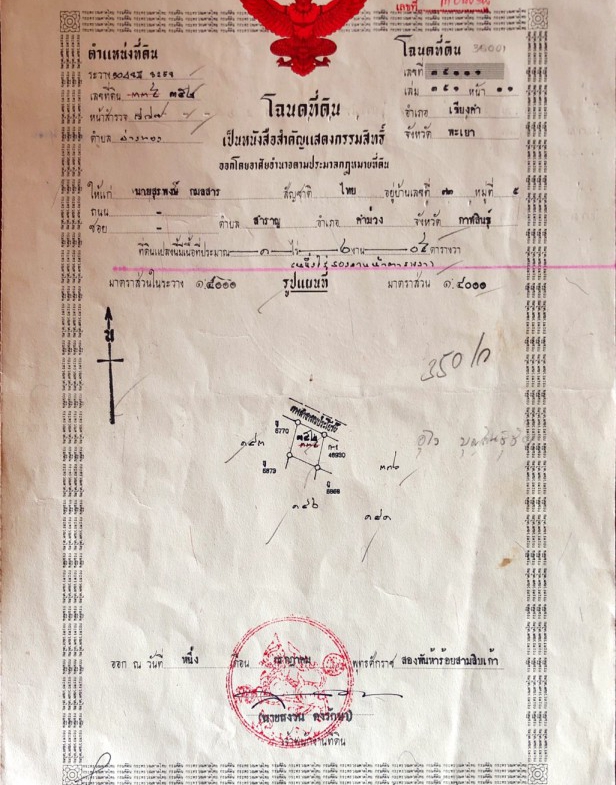 เลขที่
ตำแหน่งที่ดิน
โฉนดที่ดิน 35001
ระวาง
เลขที่ ๓๕๐๐๑
เลขที่ดิน ๓๓๕ ๓๕๔
เล่ม ๓๕๑ หน้า ๑๑
หน้าสำรวจ ๗๗๗
โฉนดที่ดิน
อำเภอ เชียงคำ
ตำบล อ่างทอง
เป็นหนังสือสำคัญแสดงกรรมสิทธิ์
จังหวัด พะเยา
ออกโดยอาศัยอำนาจตามประมวลกฎหมายที่ดิน
ให้แก่ นายสุรพงษ์ กมลสาร สัญชาติ ไทย อยู่บ้านเลขที่ ๗๓ หมู่ที่ ๕
ถนน -
ซอย - ตำบล สำราญ อำเภอ คำม่วง จังหวัด กาฬสินธุ์
ที่ดินแปลงนี้มีเนื้อที่ประมาณ ๑ ไร่ ๒ งาน ๐๕ ตารางวา
(หนึ่งไร่สองงานห้าตารางวา)
มาตราส่วนในระวาง ๑:๔๐๐๐ รูปแผนที่ มาตราส่วน ๑:๔๐๐๐
น
350/ก
ทางสาธารณประโยชน์
ฎ
6770
๓๕๔
๓๓๕
ก-1
48930
๑๔๓
ฎ
6873
๓๗๐
ฎ
๑๔๖
๑๔๑
ออก ณ วันที่ หนึ่ง เดือน กรกฎาคม พุทธศักราช สองพันห้าร้อยสามสิบเก้า
เจ้าพนักงานที่ดิน